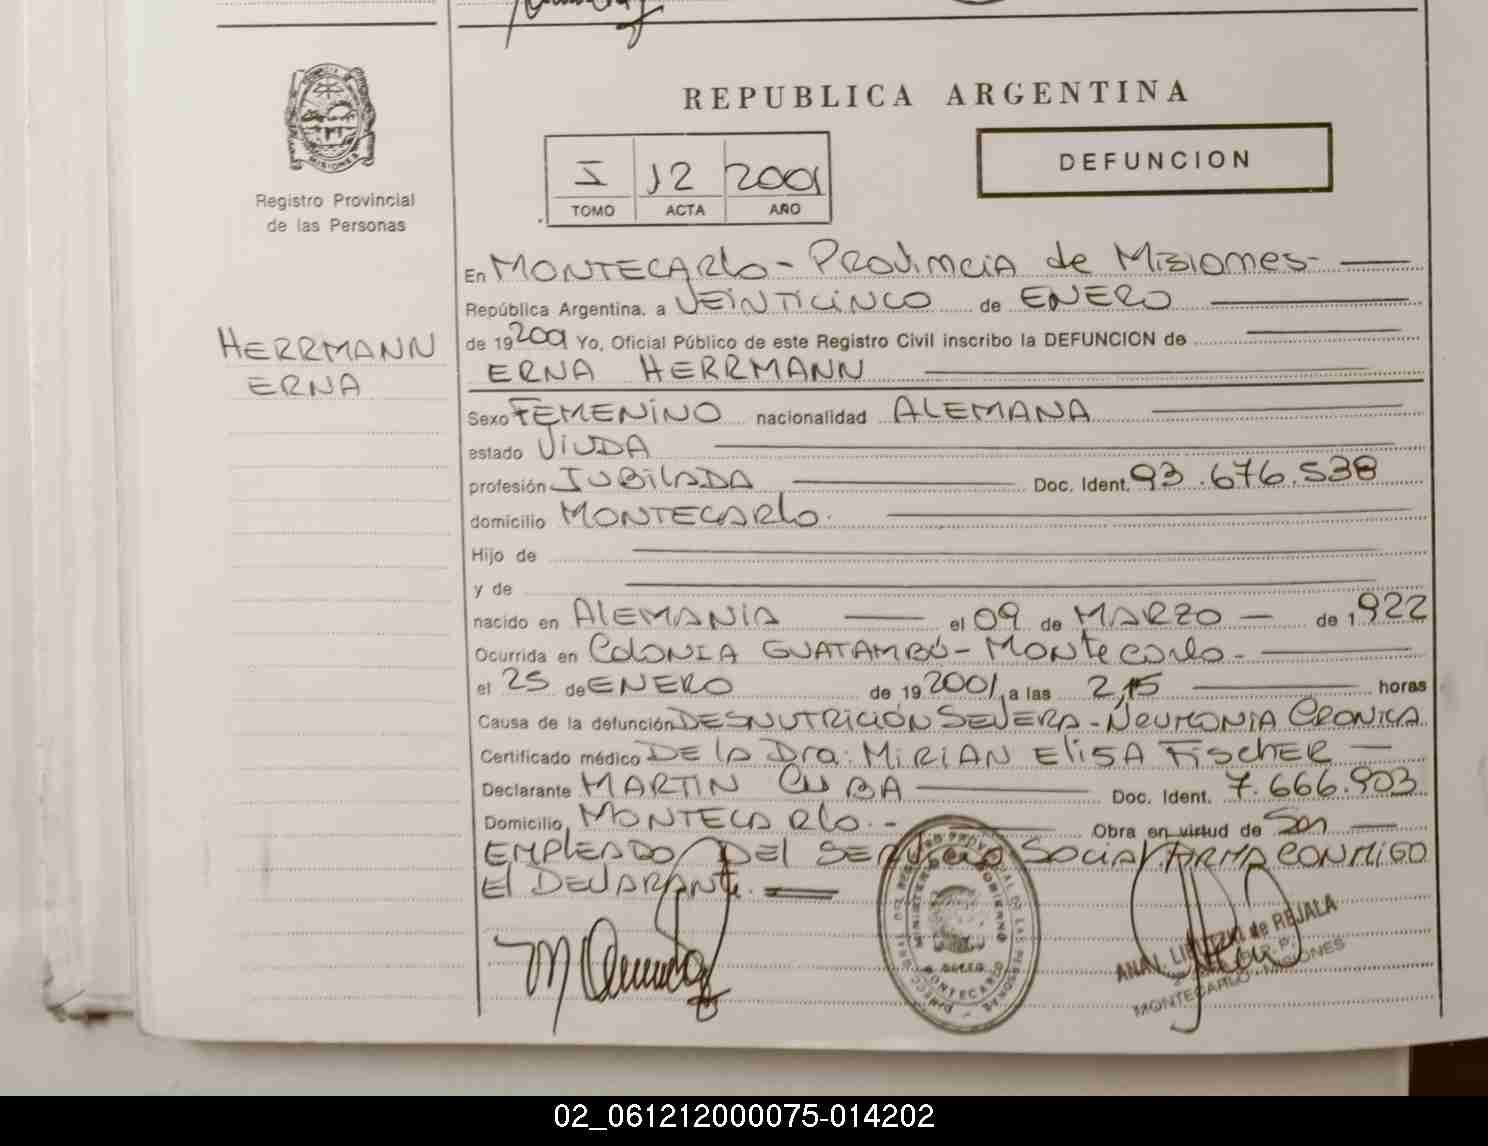 REPUBLICA ARGENTINA
MISIONES
Registro Provincial
de las Personas
I 12 2001
TOMO ACTA AÑO
DEFUNCION
HERRMANN
ERNA
En MONTECARLO - PROVINCIA de MISIONES -
República Argentina, a VEINTICINCO de ENERO
de 19 2001 Yo, Oficial Público de este Registro Civil inscribo la DEFUNCION de
ERNA HERRMANN
Sexo FEMENINO nacionalidad ALEMANA
estado VIUDA
profesión JUBILADA Doc. Ident. 93.676.538
domicilio MONTECARLO.
Hijo de
y de
nacido en ALEMANIA el 09 de MARZO de 1922
Ocurrida en COLONIA GUATAMBÚ - MONTECARLO -
el 25 de ENERO de 19 2001, a las 2,15 horas
Causa de la defunción DESNUTRICIÓN SEVERA - NEUMONIA CRONICA
Certificado médico DE LA Dra. MIRIAN ELISA FISCHER
Declarante MARTIN CUBA Doc. Ident. 7.666.903
Domicilio MONTECARLO. - Obra en virtud de Ser
EMPLEADO DEL SERVICIO SOCIAL. FIRMA CONMIGO
El DECLARANTE.
MINISTERIO GOBIERNO
MONTECARLO
de REJALA
MONTECARLO - MISIONES
02_061212000075-014202